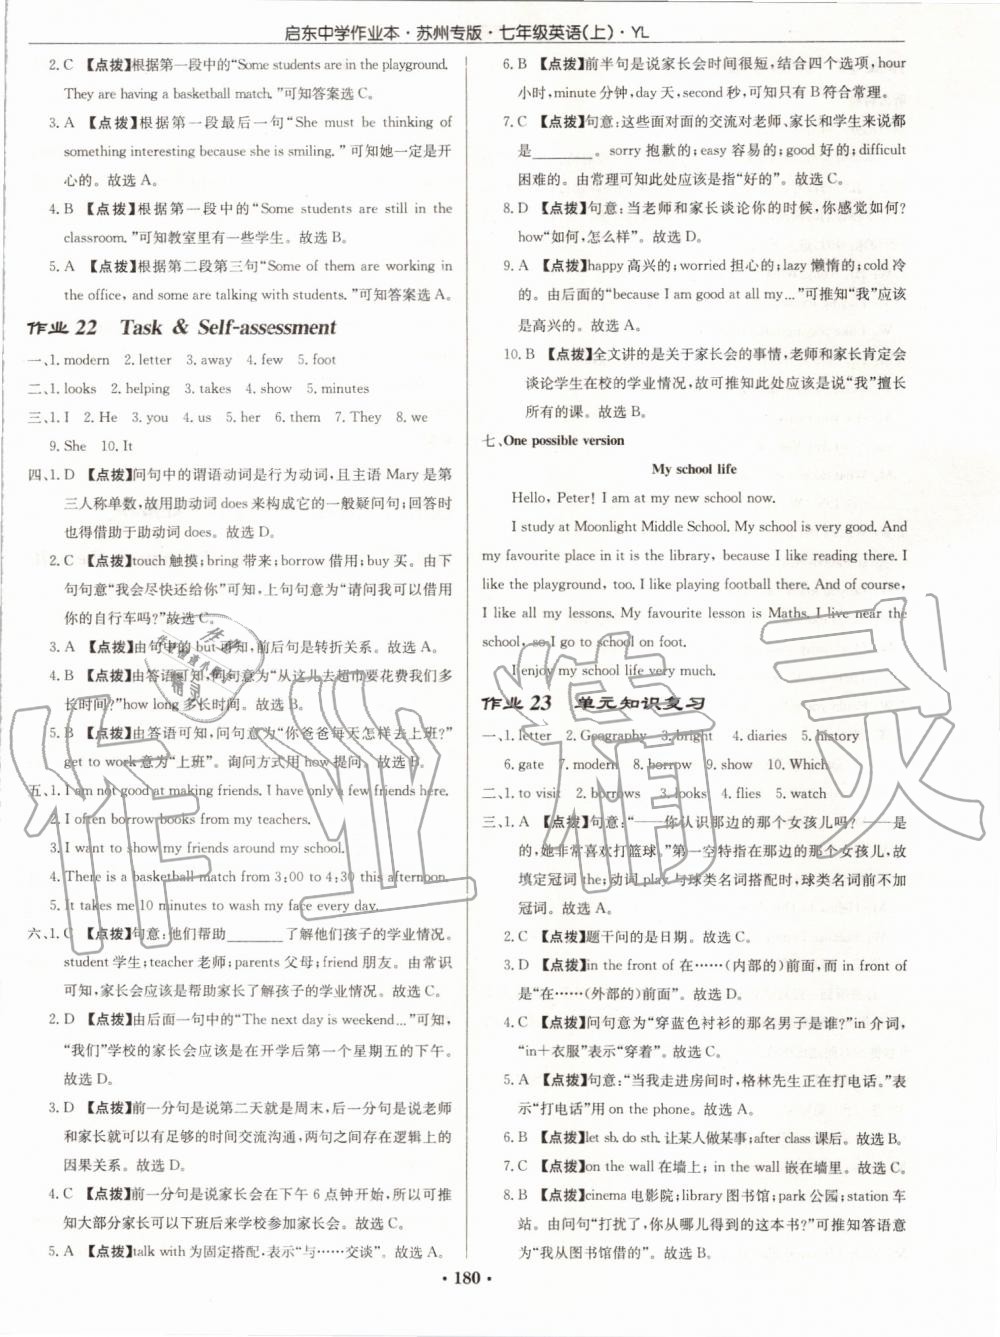 启东中学作业本·苏州专版·七年级英语(上)·YL
2. C 【点拨】根据第一段中的“Some students are in the playground.
They are having a basketball match.”可知答案选C。
3. A 【点拨】根据第一段最后一句“She must be thinking of
something interesting because she is smiling.”可知她一定是开
心的。故选A。
4. B 【点拨】根据第一段中的“Some students are still in the
classroom.”可知教室里有一些学生。故选B。
5. A 【点拨】根据第二段第三句“Some of them are working in
the office, and some are talking with students.”可知答案选A。
作业22 Task & Self-assessment
一、1. modern 2. letter 3. away 4. few 5. foot
二、1. looks 2. helping 3. takes 4. show 5. minutes
三、1. I 2. He 3. you 4. us 5. her 6. them 7. They 8. we
9. She 10. It
四、1. D 【点拨】问句中的谓语动词是行为动词，且主语Mary是第
三人称单数，故用助动词does来构成它的一般疑问句；回答时
也得借助于助动词does。故选D。
2. C 【点拨】touch触摸；bring带来；borrow借用；buy买。由下
句句意“我会尽快还给你”可知，上句句意为“请问我可以借用
你的自行车吗？”故选C。
3. A 【点拨】由句中的but可知，前后句是转折关系。故选A。
4. B 【点拨】由答语可知，问句意为“从这儿去超市要花费我们多
长时间？”how long多长时间。故选B。
5. B 【点拨】由答语可知，问句意为“你爸爸每天怎样去上班？”
get to work意为“上班”。询问方式用how提问。故选B。
五、1. I am not good at making friends. I have only a few friends here.
2. I often borrow books from my teachers.
3. I want to show my friends around my school.
4. There is a basketball match from 3:00 to 4:30 this afternoon.
5. It takes me 10 minutes to wash my face every day.
六、1. C 【点拨】句意：他们帮助________了解他们孩子的学业情况。
student学生；teacher老师；parents父母；friend朋友。由常识
可知，家长会应该是帮助家长了解孩子的学业情况。故选C。
2. D 【点拨】由后面一句中的“The next day is weekend...”可知，
“我们”学校的家长会应该是在开学后第一个星期五的下午。
故选D。
3. D 【点拨】前一分句是说第二天就是周末，后一分句是说老师
和家长就可以有足够的时间交流沟通，两句之间存在逻辑上的
因果关系。故选D。
4. C 【点拨】前一分句是说家长会在下午6点钟开始，所以可推
知大部分家长可以下班后来学校参加家长会。故选C。
5. A 【点拨】talk with为固定搭配，表示“与……交谈”。故选A。
6. B 【点拨】前半句是说家长会时间很短，结合四个选项，hour
小时，minute分钟，day天，second秒，可知只有B符合常理。
7. C 【点拨】句意：这些面对面的交流对老师、家长和学生来说都
是________。sorry抱歉的；easy容易的；good好的；difficult
困难的。由常理可知此处应该是指“好的”。故选C。
8. D 【点拨】句意：当老师和家长谈论你的时候，你感觉如何？
how“如何，怎么样”。故选D。
9. A 【点拨】happy高兴的；worried担心的；lazy懒惰的；cold冷
的。由后面的“because I am good at all my...”可推知“我”应该
是高兴的。故选A。
10. B 【点拨】全文讲的是关于家长会的事情，老师和家长肯定会
谈论学生在校的学业情况，故可推知此处应该是说“我”擅长
所有的课。故选B。
七、One possible version
My school life
Hello, Peter! I am at my new school now.
I study at Moonlight Middle School. My school is very good. And
my favourite place in it is the library, because I like reading there. I
like the playground, too. I like playing football there. And of course,
I like all my lessons. My favourite lesson is Maths. I live near the
school, so I go to school on foot.
I enjoy my school life very much.
作业23 单元知识复习
一、1. letter 2. Geography 3. bright 4. diaries 5. history
6. gate 7. modern 8. borrow 9. show 10. Which
二、1. to visit 2. borrows 3. looks 4. flies 5. watch
三、1. A 【点拨】句意：“——你认识那边的那个女孩儿吗？——是
的，她非常喜欢打篮球。”第一空特指在那边的那个女孩儿，故
填定冠词the；动词play与球类名词搭配时，球类名词前不加
冠词。故选A。
2. C 【点拨】题干问的是日期。故选C。
3. D 【点拨】in the front of在……（内部的）前面，而in front of
是“在……（外部的）前面”。故选D。
4. C 【点拨】问句意为“穿蓝色衬衫的那名男子是谁？”in介词，
“in＋衣服”表示“穿着”。故选C。
5. A 【点拨】句意：“当我走进房间时，格林先生正在打电话。”表
示“打电话”用on the phone。故选A。
6. B 【点拨】let sb. do sth.让某人做某事；after class课后。故选B。
7. C 【点拨】on the wall在墙上；in the wall嵌在墙里。故选C。
8. B 【点拨】cinema电影院；library图书馆；park公园；station车
站。由问句“打扰了，你从哪儿得到的这本书？”可知答语意
为“我从图书馆借的”。故选B。
·180·
作业精灵